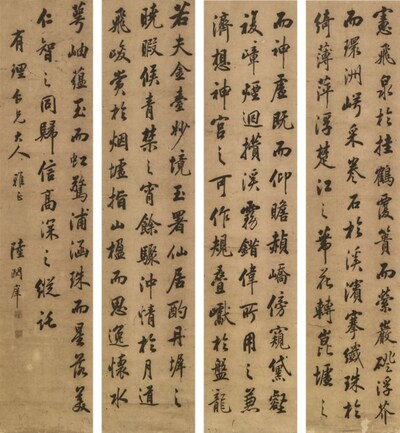 憲飛泉於挂鶴覆簣而縈巖磴浮芥
而環洲崿采卷石於溪濱搴纖珠於
綺薄萍浮楚江之蒂花轉崑墟之
而神虛既而仰瞻赬嶠傍窺黛壑
複嶂煙迴攢溪霧錯偉所用之兼
濟想神宮之可作規疊巘於盤龍
若夫金臺妙境玉署仙居酌丹墀之
曉暇候青禁之宵餘驟沖情於月道
飛峻賞於烟墟指山楹而思逸懷水
萼岫蘊玉而虹驚浦涵珠而星落美
仁智之同歸信高深之縱託
有理台兄大人雅正 陸潤庠